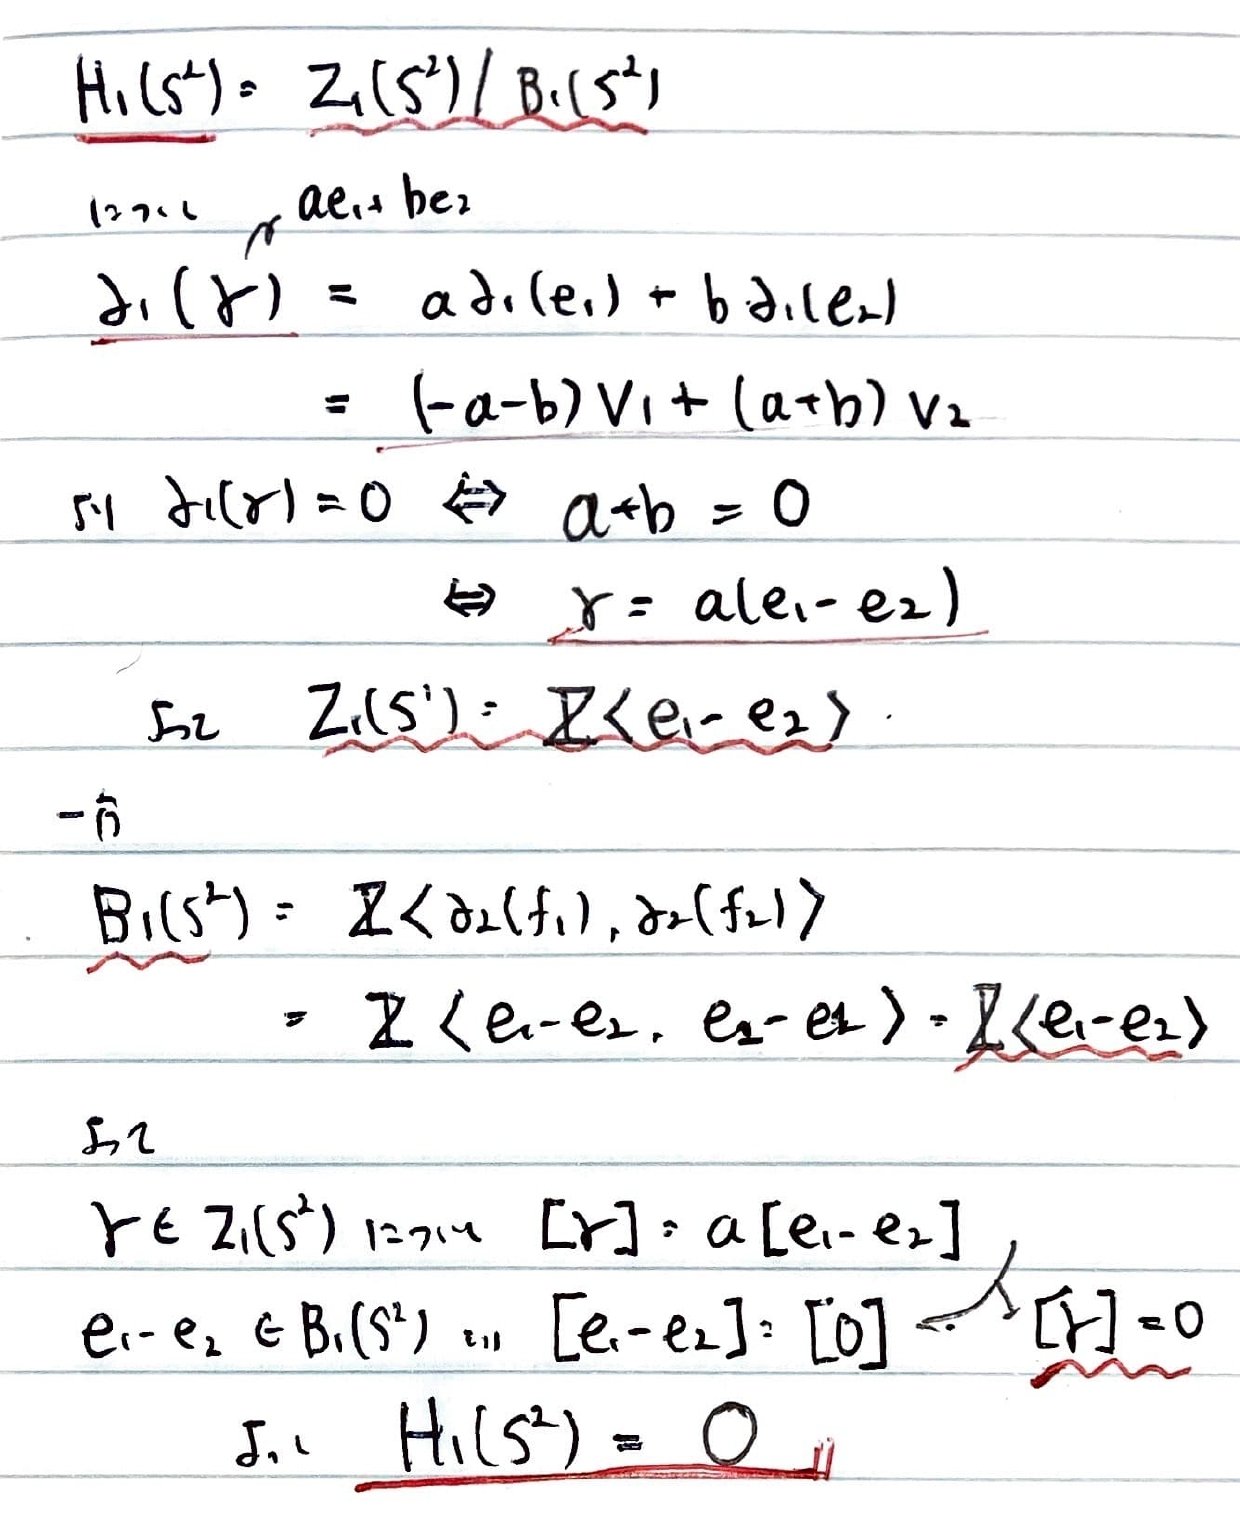 H₁(S²) = Z₁(S²) / B₁(S²)
について
ae₁ + be₂
∂₁(γ) = a∂₁(e₁) + b∂₁(e₂)
= (-a-b)V₁ + (a+b)V₂
より ∂₁(γ) = 0 ⇔ a+b = 0
⇔ γ = a(e₁ - e₂)
よって Z₁(S¹) = ℤ<e₁ - e₂>.
一方
B₁(S²) = ℤ<∂₂(f₁), ∂₂(f₂)>
= ℤ<e₁-e₂, e₂-e₁> = ℤ<e₁-e₂>
よって
γ ∈ Z₁(S²) について [γ] = a[e₁ - e₂]
e₁ - e₂ ∈ B₁(S²) [e₁ - e₂] = [0] [γ] = 0
よって H₁(S²) = 0